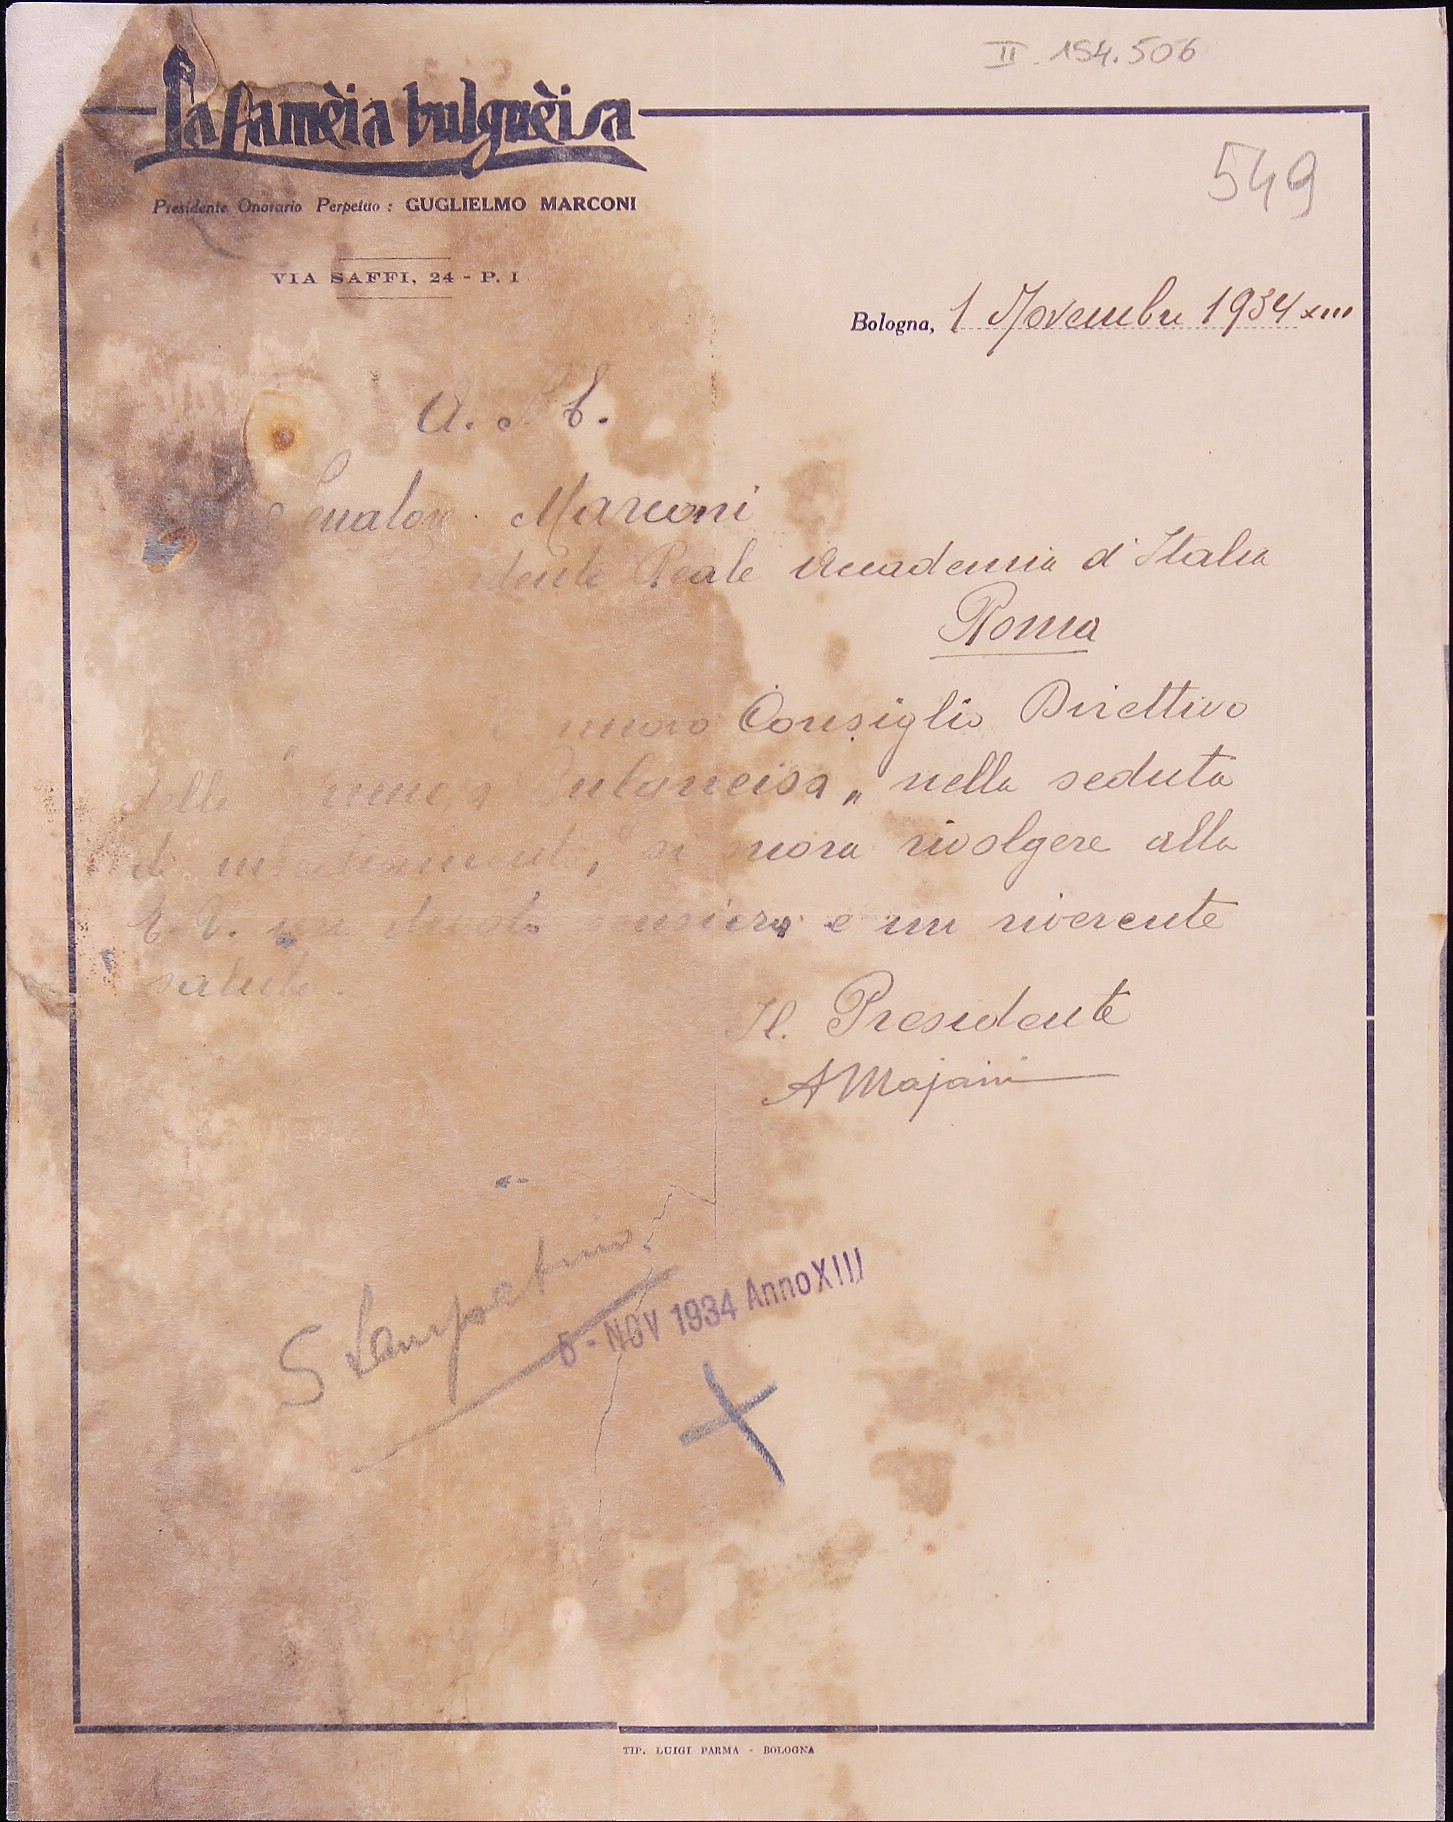 II 154.506
La Famèia bulgnèisa
Presidente Onorario Perpetuo : GUGLIELMO MARCONI
549
VIA SAFFI, 24 - P. I
Bologna, 1 Novembre 1934 XIII
A. S. E.
Senatore Marconi
Reale Accademia d'Italia
Roma
nuovo Consiglio Direttivo
della Bulgneisa„ nella seduta
di rivolgere alla
E. V. un devoto pensiero e un riverente
saluto.
Il Presidente
A Majani
Stampatino
5 - NOV 1934 Anno XIII
TIP. LUIGI PARMA - BOLOGNA